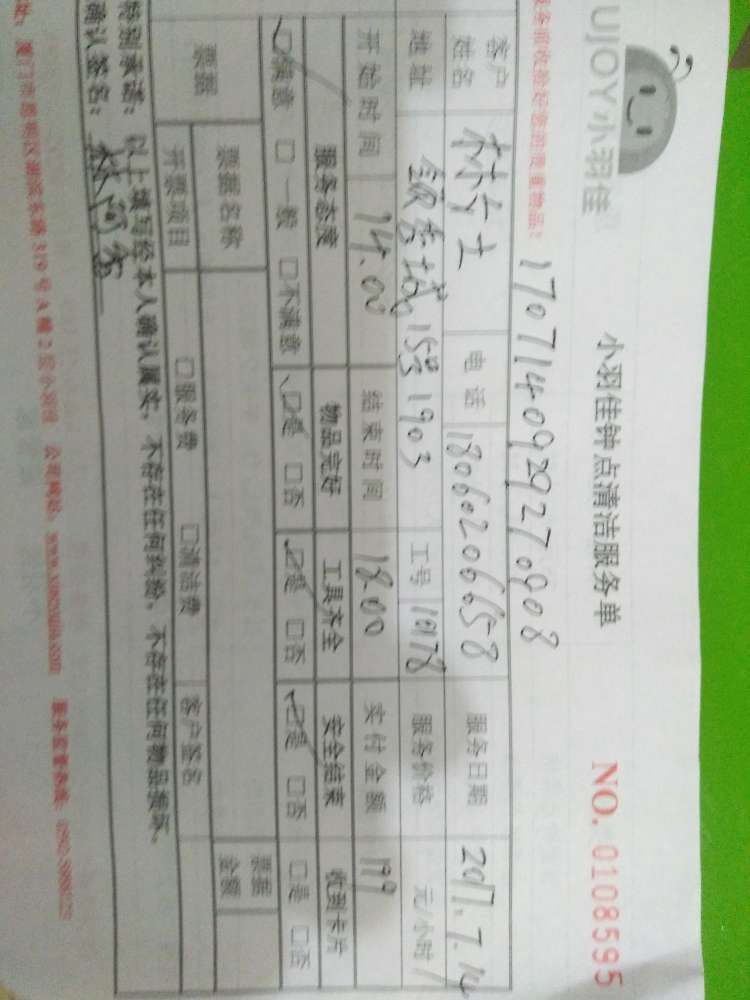 UJOY小羽佳
小羽佳钟点清洁服务单
NO. 0108595
1707140929270908
客户姓名 林女士 电话 18060206658 服务日期 2017.7.14
地址 15号1903 工号 10178 服务价格 元/小时
开始时间 14.00 结束时间 18.00 实付金额 199
服务态度 物品完好 工具齐全 安全结束 收到卡片
☑满意 □一般 □不满意 ☑是 □否 ☑是 □否 ☑是 □否 □是 □否
票据 票据名称 票据金额
开票项目 □服务费 □清洁费 客户签名
特别承诺: 以上填写经本人确认属实,不存在任何纠纷,不存在任何物品损坏。
确认签名: